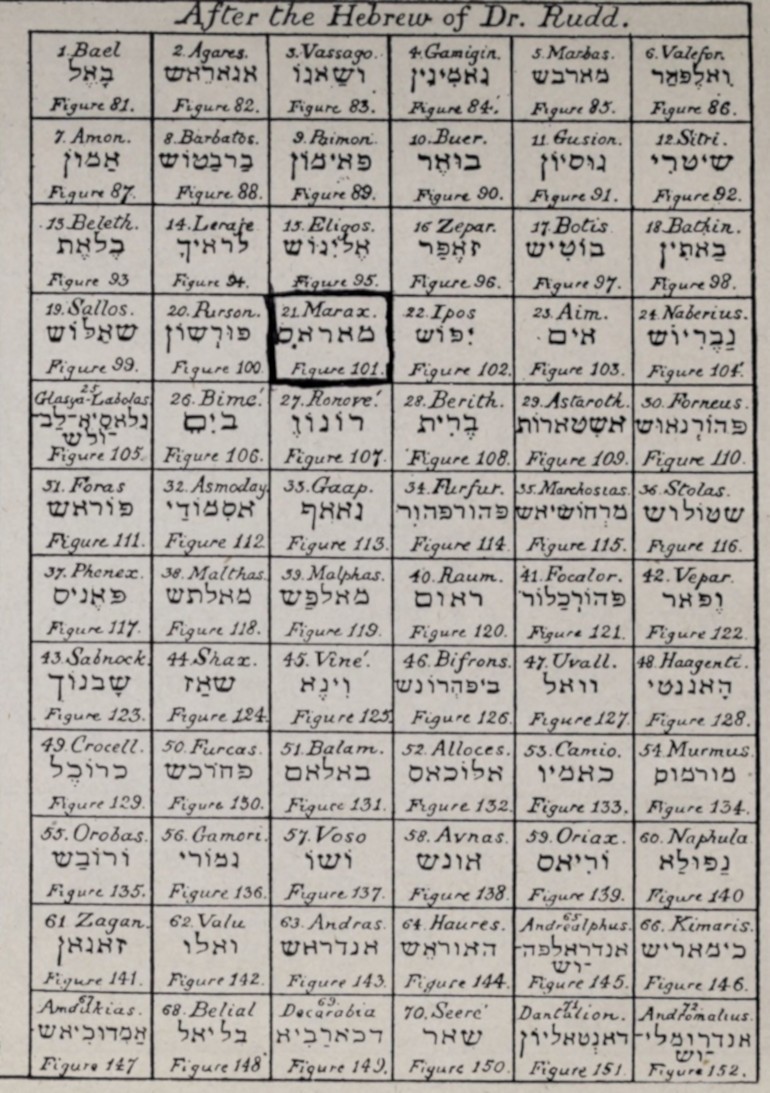 After the Hebrew of Dr. Rudd.
1. Bael
בָאֵל
Figure 81.
2. Agares.
אגאראש
Figure 82.
3. Vassago.
ושאגוֹ
Figure 83.
4. Gamigin.
גאמיגין
Figure 84.
5. Marbas.
מארבש
Figure 85.
6. Valefor.
ואלפהר
Figure 86.
7. Amon.
אַמוֹן
Figure 87.
8. Barbatos.
בּרבטוש
Figure 88.
9. Paimon.
פאימון
Figure 89.
10. Buer.
בואר
Figure 90.
11. Gusion.
גוסיון
Figure 91.
12. Sitri.
שיטרי
Figure 92.
13. Beleth.
בלאת
Figure 93
14. Leraje
לראיך
Figure 94.
15. Eligos.
אליגוש
Figure 95.
16 Zepar.
זאפר
Figure 96.
17. Botis
בוטיש
Figure 97.
18. Bathin.
באתין
Figure 98.
19. Sallos.
שאלוש
Figure 99.
20. Purson.
פורשון
Figure 100.
21. Marax.
מאראס
Figure 101.
22. Ipos
יפוש
Figure 102.
23. Aim.
אים
Figure 103.
24. Naberius.
נבריוש
Figure 104.
25
Glasya-Labolas.
גלאסיא-לב-
-ולש
Figure 105.
26. Bimé.
בים
Figure 106.
27. Ronové.
רונוו
Figure 107.
28. Berith.
ברית
Figure 108.
29. Astaroth.
אשטארות
Figure 109.
30. Forneus.
פהורנאוש
Figure 110.
31. Foras
פוראש
Figure 111.
32. Asmoday
אסמודי
Figure 112
33. Gaap.
גאאף
Figure 113.
34. Furfur.
פהורפהור
Figure 114.
35. Marchosias.
מרחושיאש
Figure 115.
36. Stolas.
שטולוש
Figure 116.
37. Phenex.
פאניס
Figure 117.
38. Malthas.
מאלתש
Figure 118.
39. Malphas.
מאלפש
Figure 119.
40. Raum.
ראום
Figure 120.
41. Focalor.
פהורכלור
Figure 121.
42. Vepar.
ופאר
Figure 122.
43. Sabnock.
שבנוך
Figure 123.
44. Shax.
שאז
Figure 124.
45. Viné.
וינא
Figure 125.
46. Bifrons.
ביפהרונש
Figure 126.
47. Uvall.
וואל
Figure 127.
48. Haagenti.
האגנטי
Figure 128.
49. Crocell.
כרוכל
Figure 129.
50. Furcas.
פהרכש
Figure 130.
51. Balam.
באלאם
Figure 131.
52. Alloces.
אלוכאס
Figure 132.
53. Camio.
כאמיו
Figure 133.
54. Murmus.
מורמוס
Figure 134.
55. Orobas.
ורובש
Figure 135.
56. Gamori.
גמורי
Figure 136.
57. Voso
ושו
Figure 137.
58. Avnas.
אונש
Figure 138.
59. Oriax.
וריאס
Figure 139.
60. Naphula
נפולא
Figure 140
61 Zagan.
זאגאן
Figure 141.
62. Valu
ואלו
Figure 142.
63. Andras.
אנדראש
Figure 143.
64. Haures.
האוראש
Figure 144.
65
Andrealphus.
אנדראלפה-
-וש
Figure 145.
66. Kimaris.
כימאריש
Figure 146.
67
Amdukias.
אמדוכיאש
Figure 147
68. Belial
בליאל
Figure 148
69.
Decarabia
דכארביא
Figure 149.
70. Seeré
שאר
Figure 150.
71.
Dantalion.
דאנטאליון
Figure 151.
72.
Andromalius.
אנדרומלי-
-וש
Figure 152.